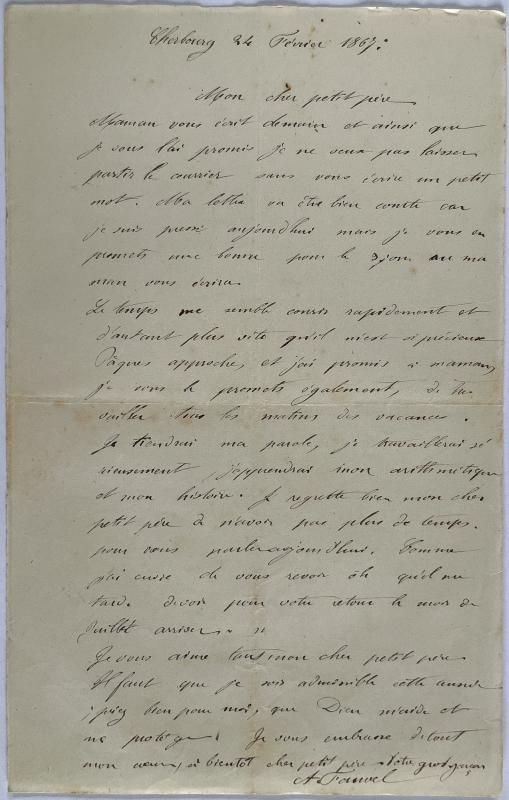 Cherbourg 24 Février 1867.
Mon cher petit père
Maman vous écrit demain et ainsi que
je vous l'ai promis je ne veux pas laisser
partir le courrier sans vous écrire un petit
mot. Ma lettre va être bien courte car
je suis pressé aujourd'hui mais je vous en
promets une bonne pour le jour ou ma
man vous écrira
Le temps me semble courir rapidement et
d'autant plus vite qu'il m'est si précieux
Pâques approche, et j'ai promis à maman,
je vous le promets également, de tra
vailler tous les matins des vacances.
Je tiendrai ma parole, je travaillerai sé
rieusement j'apprendrai mon arithmétique
et mon histoire. Je regrette bien mon cher
petit père de n'avoir pas plus de temps.
pour vous parler aujourd'hui. Comme
j'ai envie de vous revoir oh qu'il me
tarde de voir pour votre retour le mois de
Juillet arriver.
Je vous aime tant mon cher petit père
Il faut que je sois admissible cette année
priez bien pour moi, que Dieu m'aide et
me protège. Je vous embrasse de tout
mon cœur, à bientôt cher petit père Votre gros garçon
A. Fauvel